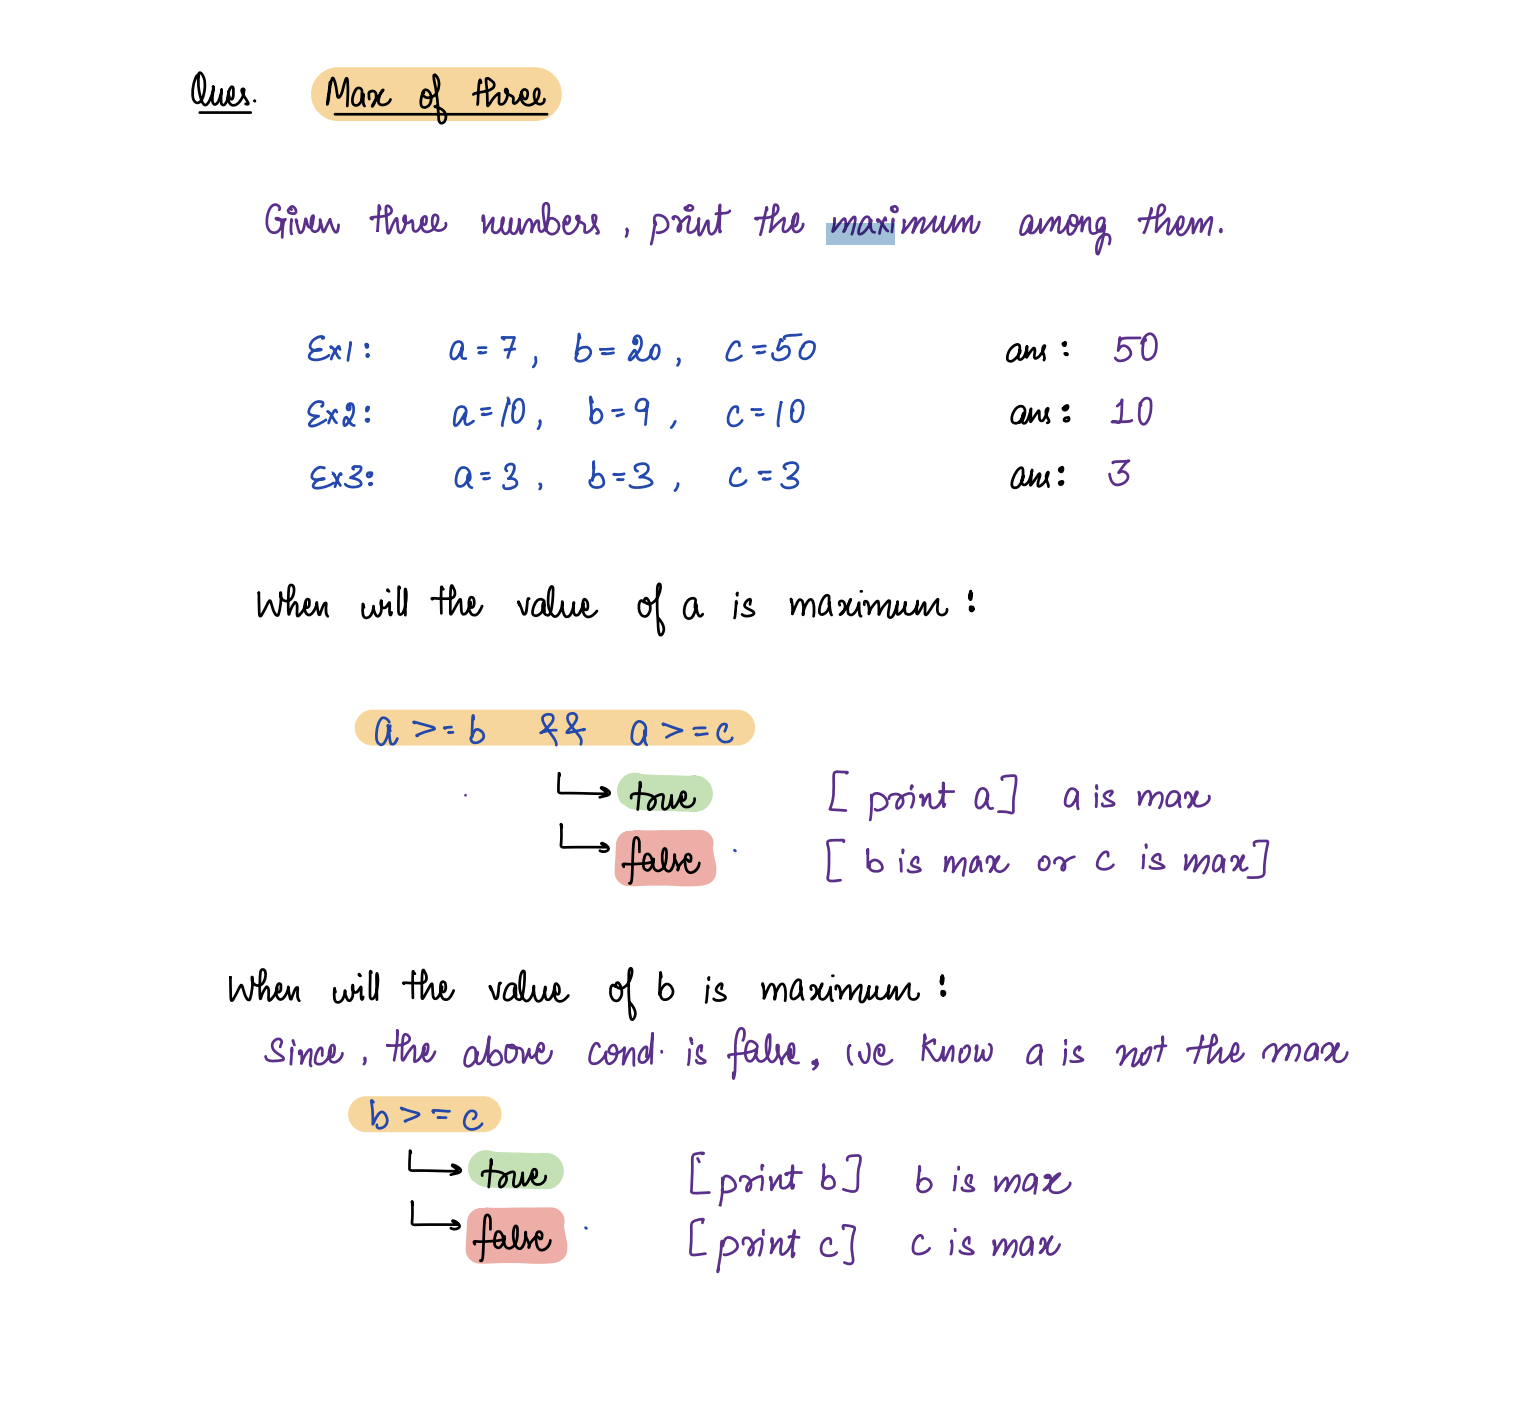 Ques. Max of three
Given three numbers, print the maximum among them.
Ex1: a=7, b=20, c=50 ans: 50
Ex2: a=10, b=9, c=10 ans: 10
Ex3: a=3, b=3, c=3 ans: 3
When will the value of a is maximum:
a >= b && a >= c
true [print a] a is max
false [b is max or c is max]
When will the value of b is maximum:
Since, the above cond. is false, we know a is not the max
b >= c
true [print b] b is max
false [print c] c is max